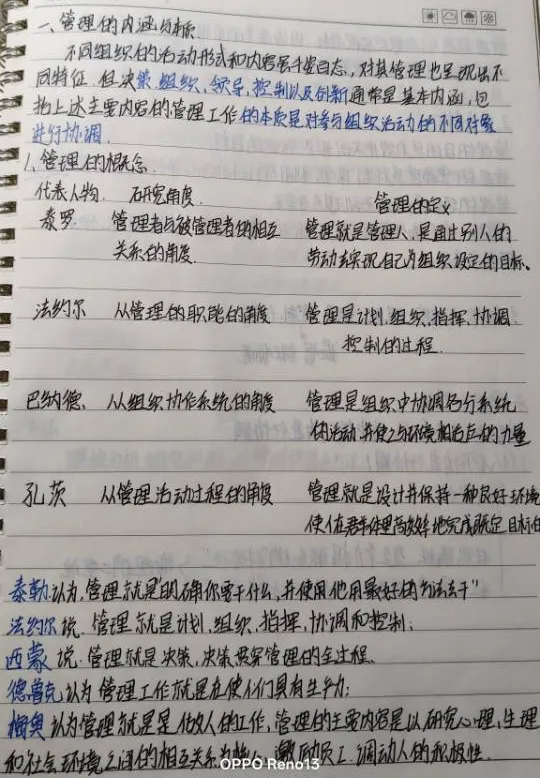 一、管理的内涵与本质
不同组织的活动形式和内容尽管千姿百态，对其管理也呈现出不
同特征，但决策、组织、领导、控制以及创新通常是基本内涵，包
括上述主要内容的管理工作的本质是对参与组织活动的不同对象
进行协调.
1、管理的概念
代表人物. 研究角度. 管理的定义
泰罗 管理者与被管理者的相互 管理就是管理人，是通过别人的
关系的角度. 劳动去实现自己为组织设定的目标。
法约尔 从管理的职能的角度 管理是计划、组织、指挥、协调
控制的过程.
巴纳德、 从组织协作系统的角度 管理是组织中协调各分系统
的活动，并使之与环境相适应的力量
孔茨 从管理活动过程的角度 管理就是设计并保持一种良好环境
使人在群体里高效率地完成既定目标的
泰勒认为，管理就是"明确你要干什么，并使用他用最好的方法去干"
法约尔说. 管理就是计划、组织、指挥、协调和控制；
西蒙说. 管理就是决策，决策贯穿管理的全过程.
德鲁克认为 管理工作就是在使人们具有生产力；
梅奥认为管理就是是做人的工作，管理的主要内容是以研究心理、生理
和社会环境之间的相互关系为核心 激励员工、调动人的积极性.
OPPO Reno13